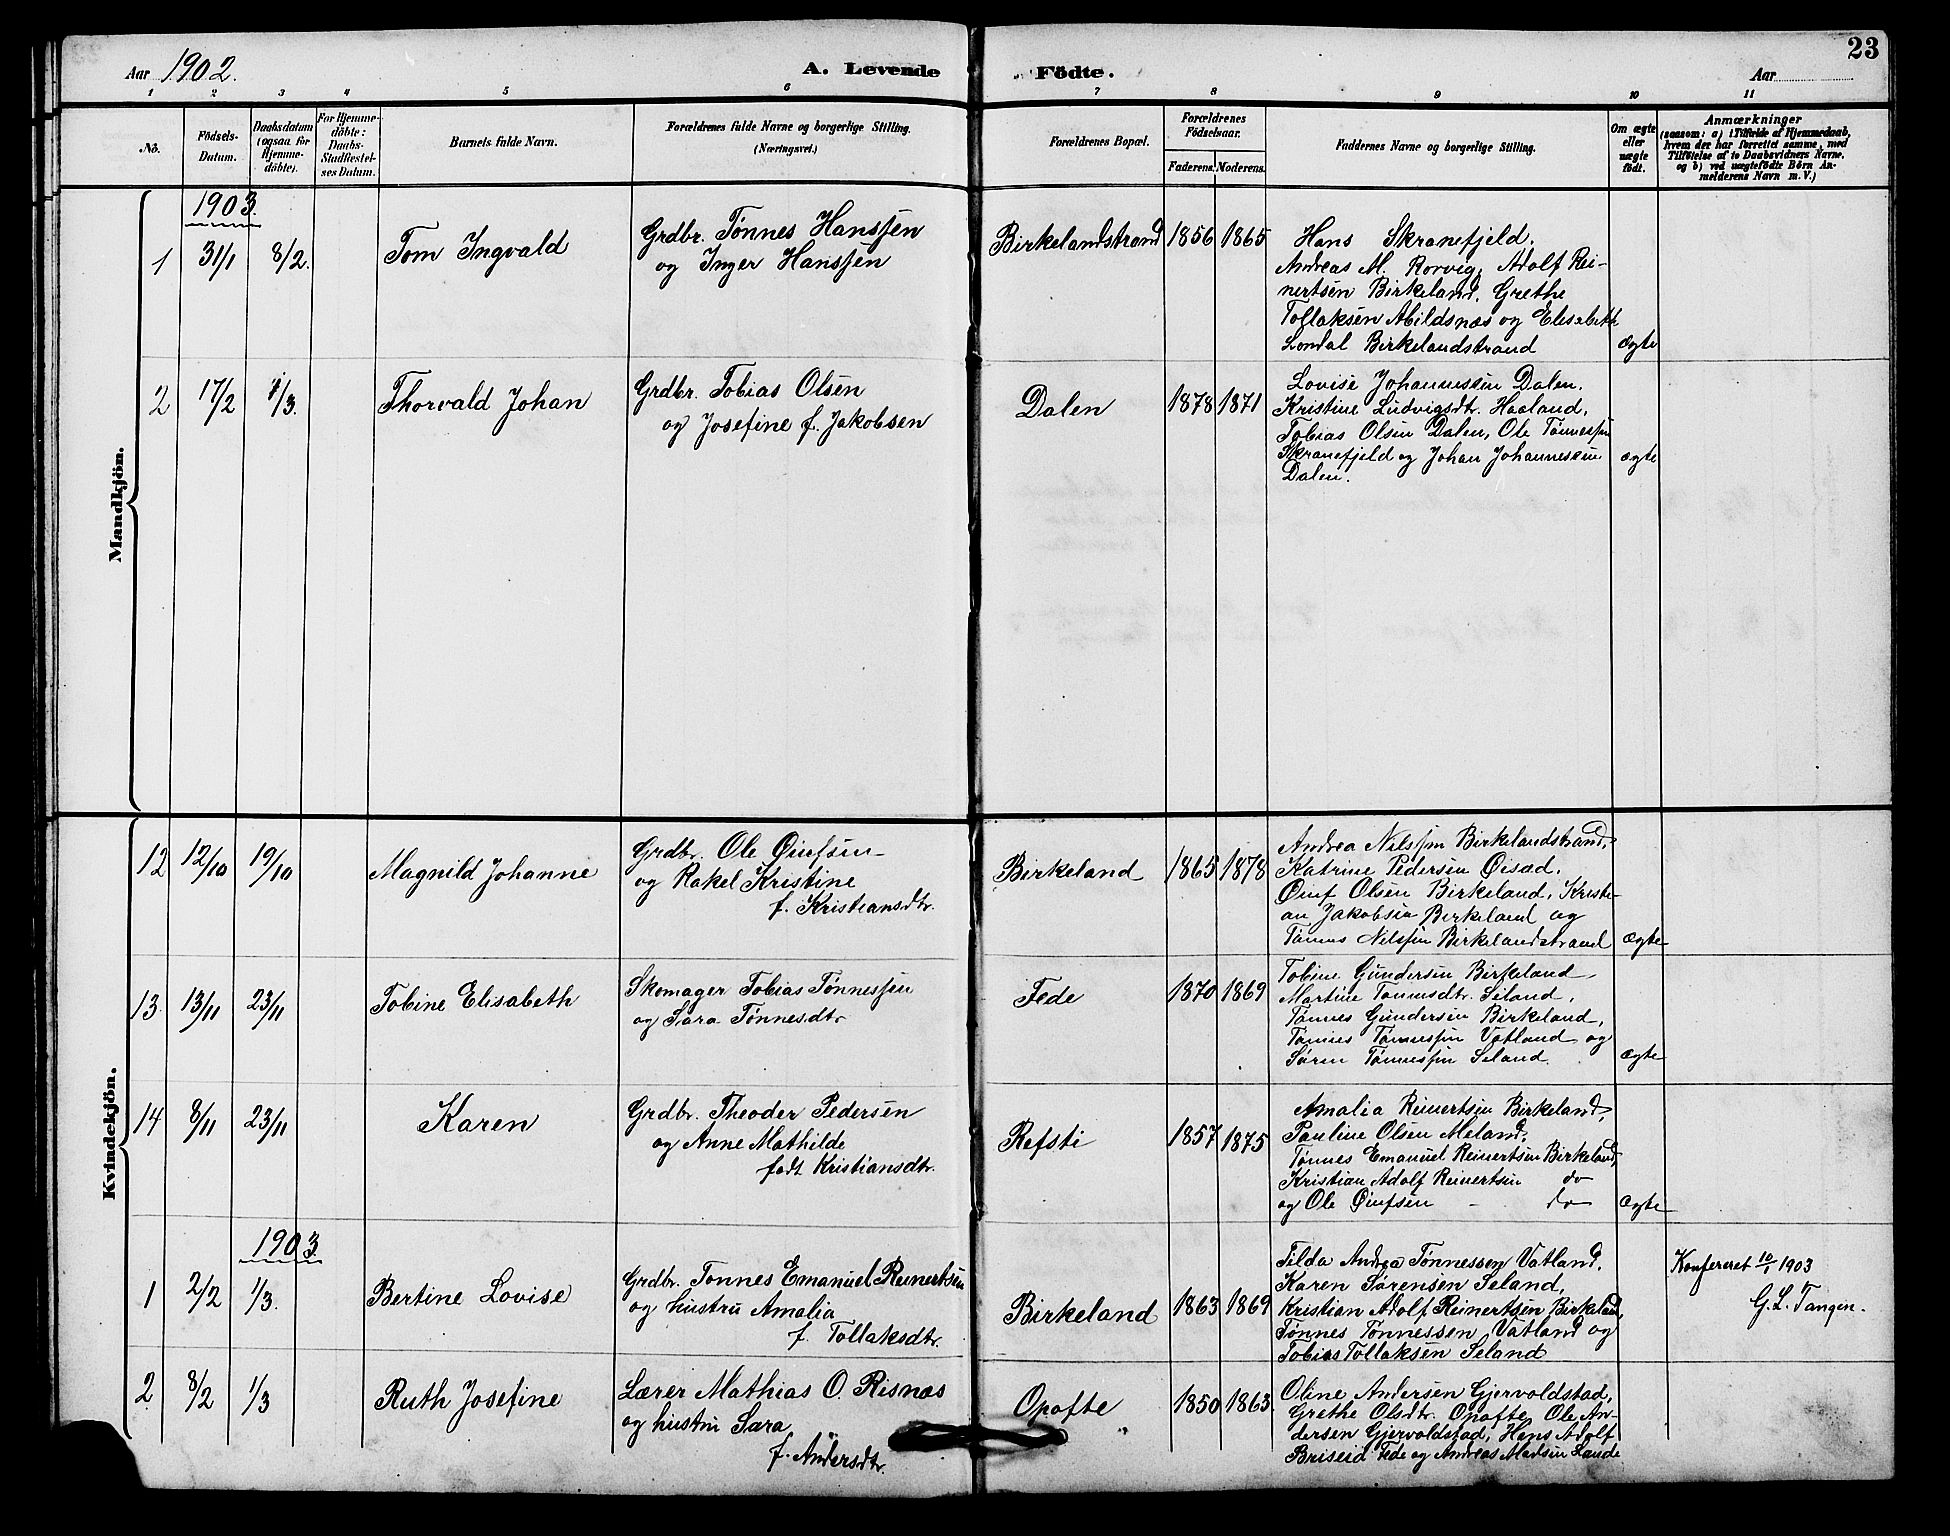 23
Aar 1902.
A. Levende Födte.
Aar
1 2 3 4 5 6 7 8 9 10 11
No.
Födsels-Datum.
Daabsdatum (ogsaa for Hjemme-döbte).
For Hjemme-döbte: Daabs-Stadfæstel-ses Datum.
Barnets fulde Navn.
Forældrenes fulde Navne og borgerlige Stilling.
(Næringsvei.)
Forældrenes Bopæl.
Forældrenes Födselsaar.
Faderens. Moderens.
Faddernes Navne og borgerlige Stilling.
Om ægte eller uægte födt.
Anmærkninger
(saasom: a) i Tilfælde af Hjemmedaab,
hvem der har forrettet samme, med
Tilföielse af to Daabsvidners Navne,
og b) ved uægtefödte Börn An-
melderens Navn m. V.)
Mandkjön.
1903.
1 31/1 8/2. Tom Ingvald
Grdbr. Tønnes Hanssen
og Inger Hanssen
Birkelandstrand 1856 1865
Hans Skranefjeld.
Andreas M. Rorvig, Adolf Rei-
nertsen Birkeland. Grethe
Tollaksen Abildsnæs og Elisabeth
Londal Birkelandstrand
Ægte
2 17/2 1/3. Thorvald Johan
Grdbr. Tobias Olsen
og Josefine f. Jakobsen
Dalen 1878 1871
Lovise Johannessen Dalen.
Kristine Ludvigsdtr. Haaland,
Tobias Olsen Dalen, Ole Tønnessen
Skranefjeld og Johan Johannessen
Dalen.
ægte
Kvindekjön.
12 12/10 19/10 Magnild Johanne
Grdbr. Ole Øiufsen
og Rakel Kristine
f. Kristiansdtr.
Birkeland 1865 1878
Andrea Nilssen Birkelandstrand,
Katrine Pedersen Øisæd.
Øiuf Olsen Birkeland, Kristi-
an Jakobsen Birkeland og
Tønnes Nilssen Birkelandstrand
Ægte
13 13/11 23/11 Tobine Elisabeth
Skomager Tobias Tønnessen
og Sara Tønnesdtr
Fede 1870 1869
Tobine Gundersen Birkeland,
Martine Tønnesdtr. Seland,
Tønnes Gundersen Birkeland,
Tønnes Tønnessen Vatland og
Søren Tønnessen Seland.
Ægte
14 8/11 23/11 Karen
Grdbr. Theoder Pedersen
og Anne Mathilde
født Kristiansdtr.
Refsti 1857 1875
Amalia Reinertsen Birkeland,
Pauline Olsen Meland,
Tønnes Emanuel Reinertsen Birkeland,
Kristian Adolf Reinertsen do
og Ole Øiufsen - do
Ægte
1903.
1 2/2 1/3. Bertine Lovise
Grdbr. Tonnes Emanuel Reinertsen
og hustru Amalia
f. Tollaksdtr.
Birkeland 1863 1869
Tilda Andrea Tønnessen Vatland.
Karen Sørensen Seland,
Kristian Adolf Reinertsen Birkeland,
Tønnes Tønnessen Vatland og
Tobias Tollaksen Seland
Konfereret 10/1 1903
G. L. Tangen.
2 8/2 1/3 Ruth Josefine
Lærer Mathias O. Risnæs
og hustru Sara
f. Andersdtr.
Opofte 1850 1863
Oline Andersen Gjervoldstad,
Grethe Olsdtr. Opofte, Ole An-
dersen Gjervoldstad, Hans Adolf
Briseid Fede og Andreas Madsen Lande